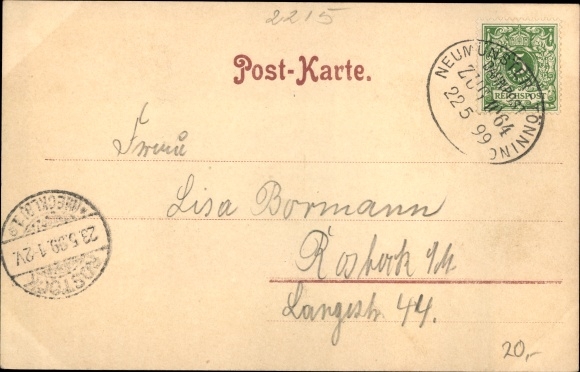 2215
Post-Karte.
NEUMÜNSTER TÖNNING
BAHNPOST
ZUG 1064
22 5 99
5
REICHSPOST
Lisa Bormann
Rostock i/M
Langestr. 44.
ROSTOCK
23.5.99.1-2V.
(MECKLB.) 1.
20,-